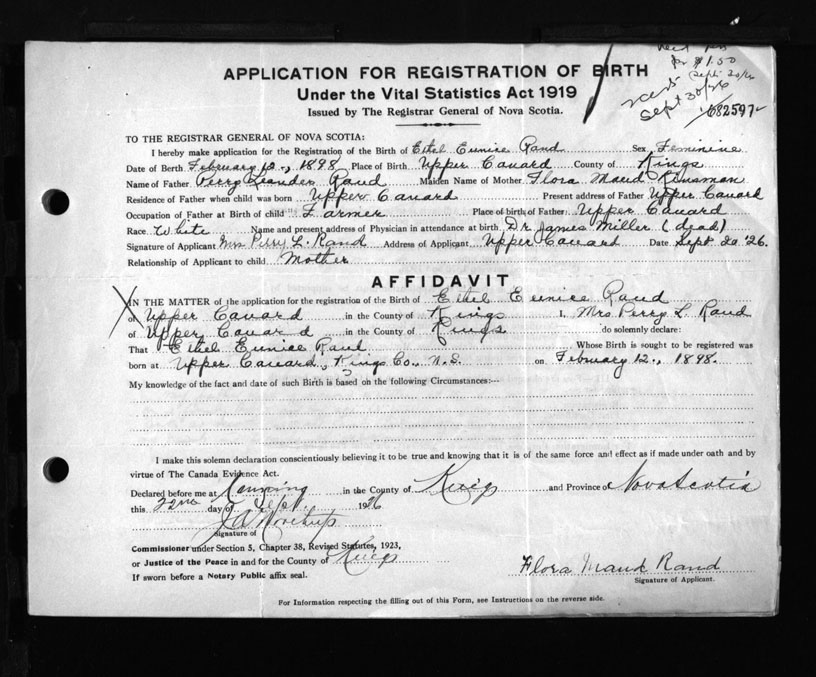 Recd
for $1.50
Sept 30/26
APPLICATION FOR REGISTRATION OF BIRTH
Under the Vital Statistics Act 1919
Recd
Sept 30/26
Issued by The Registrar General of Nova Scotia.
682597
TO THE REGISTRAR GENERAL OF NOVA SCOTIA:
I hereby make application for the Registration of the Birth of Ethel Eunice Rand Sex Feminine
Date of Birth February 12., 1898 Place of Birth Upper Canard County of Kings
Name of Father Perry Leander Rand Maiden Name of Mother Flora Maud Kinsman
Residence of Father when child was born Upper Canard Present address of Father Upper Canard
Occupation of Father at Birth of child Farmer Place of birth of Father Upper Canard
Race White Name and present address of Physician in attendance at birth Dr James Miller (dead)
Signature of Applicant Mrs Perry L. Rand Address of Applicant Upper Canard Date Sept 20 '26.
Relationship of Applicant to child Mother
AFFIDAVIT
IN THE MATTER of the application for the registration of the Birth of Ethel Eunice Rand
of Upper Canard in the County of Kings I, Mrs. Perry L. Rand
of Upper Canard in the County of Kings do solemnly declare:
That Ethel Eunice Rand Whose Birth is sought to be registered was
born at Upper Canard, Kings Co., N.S. on February 12., 1898.
My knowledge of the fact and date of such Birth is based on the following Circumstances:--
I make this solemn declaration conscientiously believing it to be true and knowing that it is of the same force and effect as if made under oath and by
virtue of The Canada Evidence Act.
Declared before me at Canning in the County of Kings and Province of Nova Scotia
this 22nd day of Sept. 1926
Signature of
Commissioner under Section 5, Chapter 38, Revised Statutes, 1923,
or Justice of the Peace in and for the County of Kings
If sworn before a Notary Public affix seal.
Flora Maud Rand
Signature of Applicant.
For Information respecting the filling out of this Form, see Instructions on the reverse side.